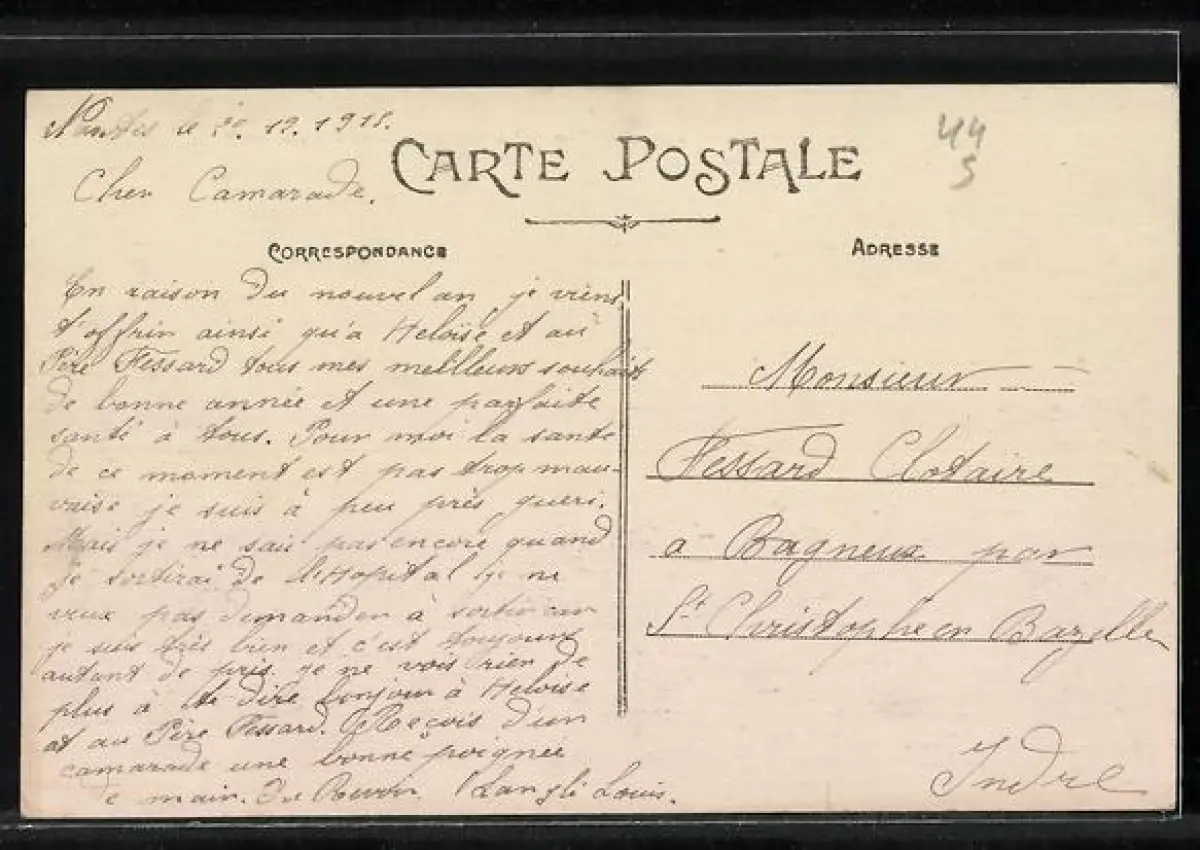 Nantes le 30.12.1918.
Cher Camarade.
CARTE POSTALE
44
S
CORRESPONDANCE
En raison du nouvel an je viens
t'offrir ainsi qu'a Heloïse et au
Père Fessard tous mes meilleurs souhaits
de bonne année et une parfaite
santé à tous. Pour moi la santé
de ce moment est pas trop mau-
vaise je suis à peu près gueri.
Mais je ne sais pas encore quand
je sortirai de l'Hopital je ne
veux pas demander à sortir car
je suis très bien et c'est toujours
autant de pris. je ne vois rien de
plus à te dire bonjour à Heloïse
et au Père Fessard. Reçois d'un
camarade une bonne poignée
de main. Au Revoir. Louis.
ADRESSE
Monsieur
Fessard Clotaire
a Bagneux par
St Christophe en Bazelle
Indre